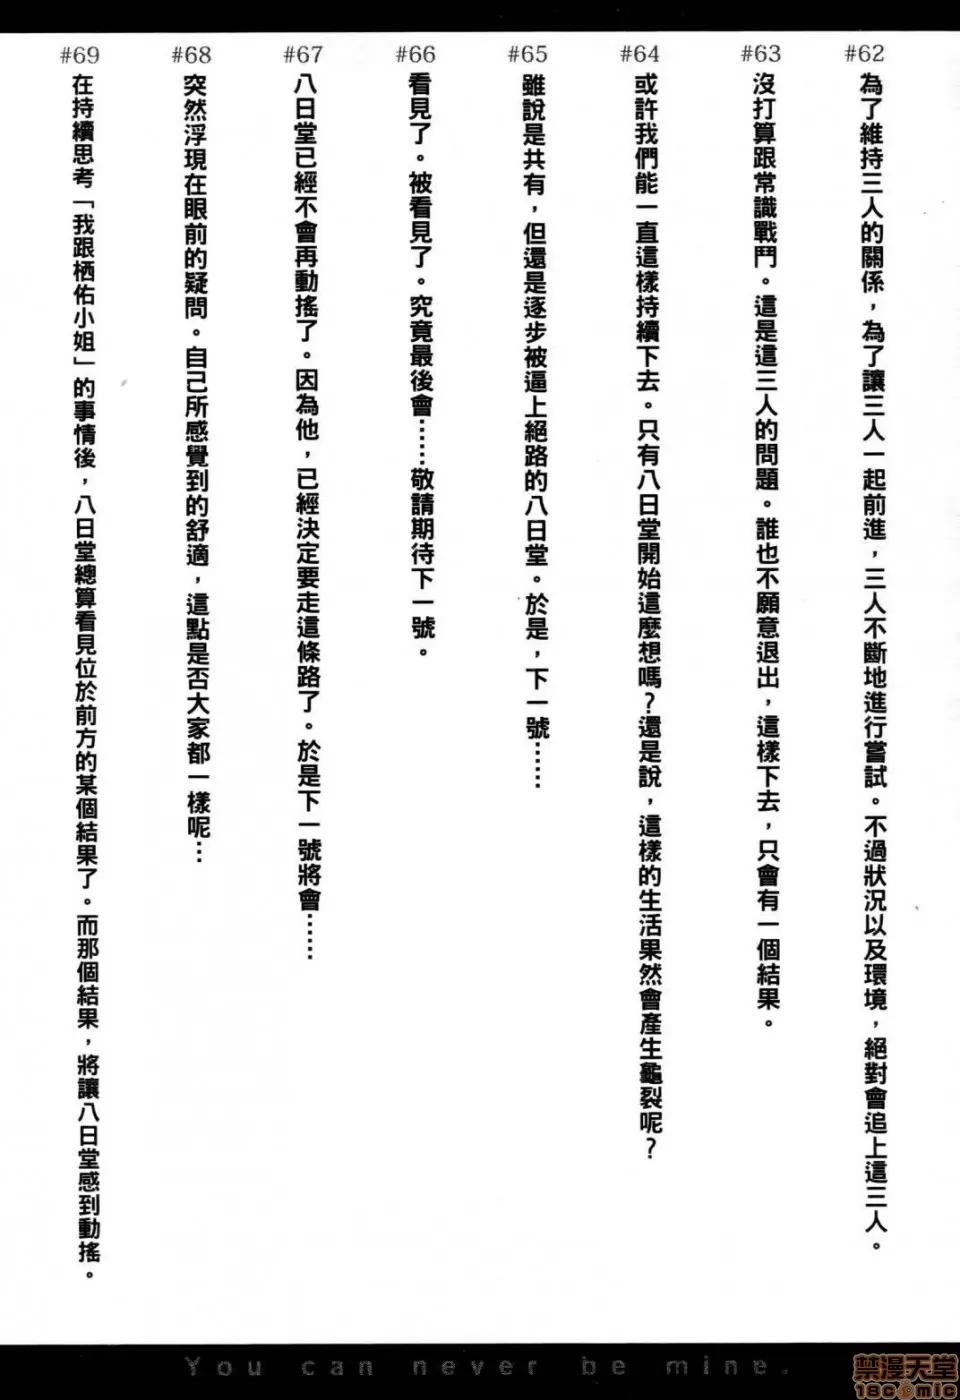 #62
為了維持三人的關係，為了讓三人一起前進，三人不斷地進行嘗試。不過狀況以及環境，絕對會追上這三人。
#63
沒打算跟常識戰鬥。這是這三人的問題。誰也不願意退出，這樣下去，只會有一個結果。
#64
或許我們能一直這樣持續下去。只有八日堂開始這麼想嗎？還是說，這樣的生活果然會產生龜裂呢？
#65
雖說是共有，但還是逐步被逼上絕路的八日堂。於是，下一號……
#66
看見了。被看見了。究竟最後會……敬請期待下一號。
#67
八日堂已經不會再動搖了。因為他，已經決定要走這條路了。於是下一號將會……
#68
突然浮現在眼前的疑問。自己所感覺到的舒適，這點是否大家都一樣呢…
#69
在持續思考「我跟栖佑小姐」的事情後，八日堂總算看見位於前方的某個結果了。而那個結果，將讓八日堂感到動搖。
You can never be mine.
禁漫天堂
18comic